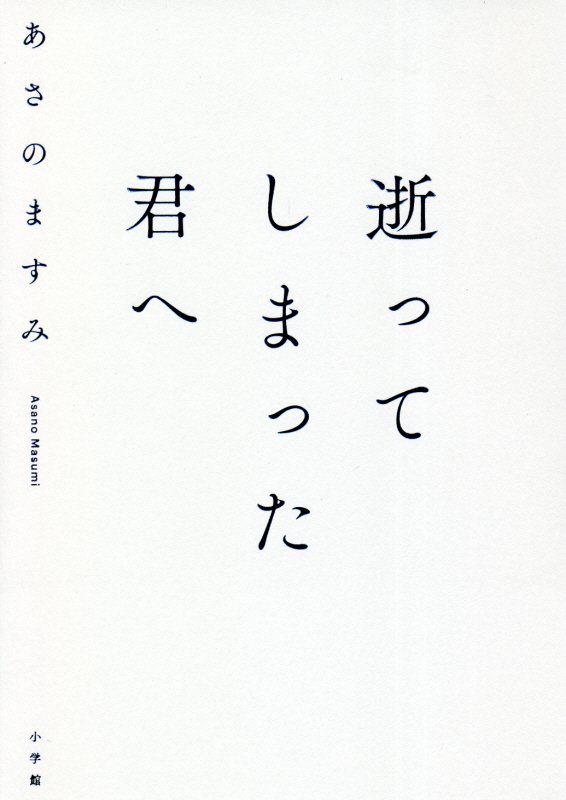 逝って
しまった
君へ
あさのますみ
Asano Masumi
小学館